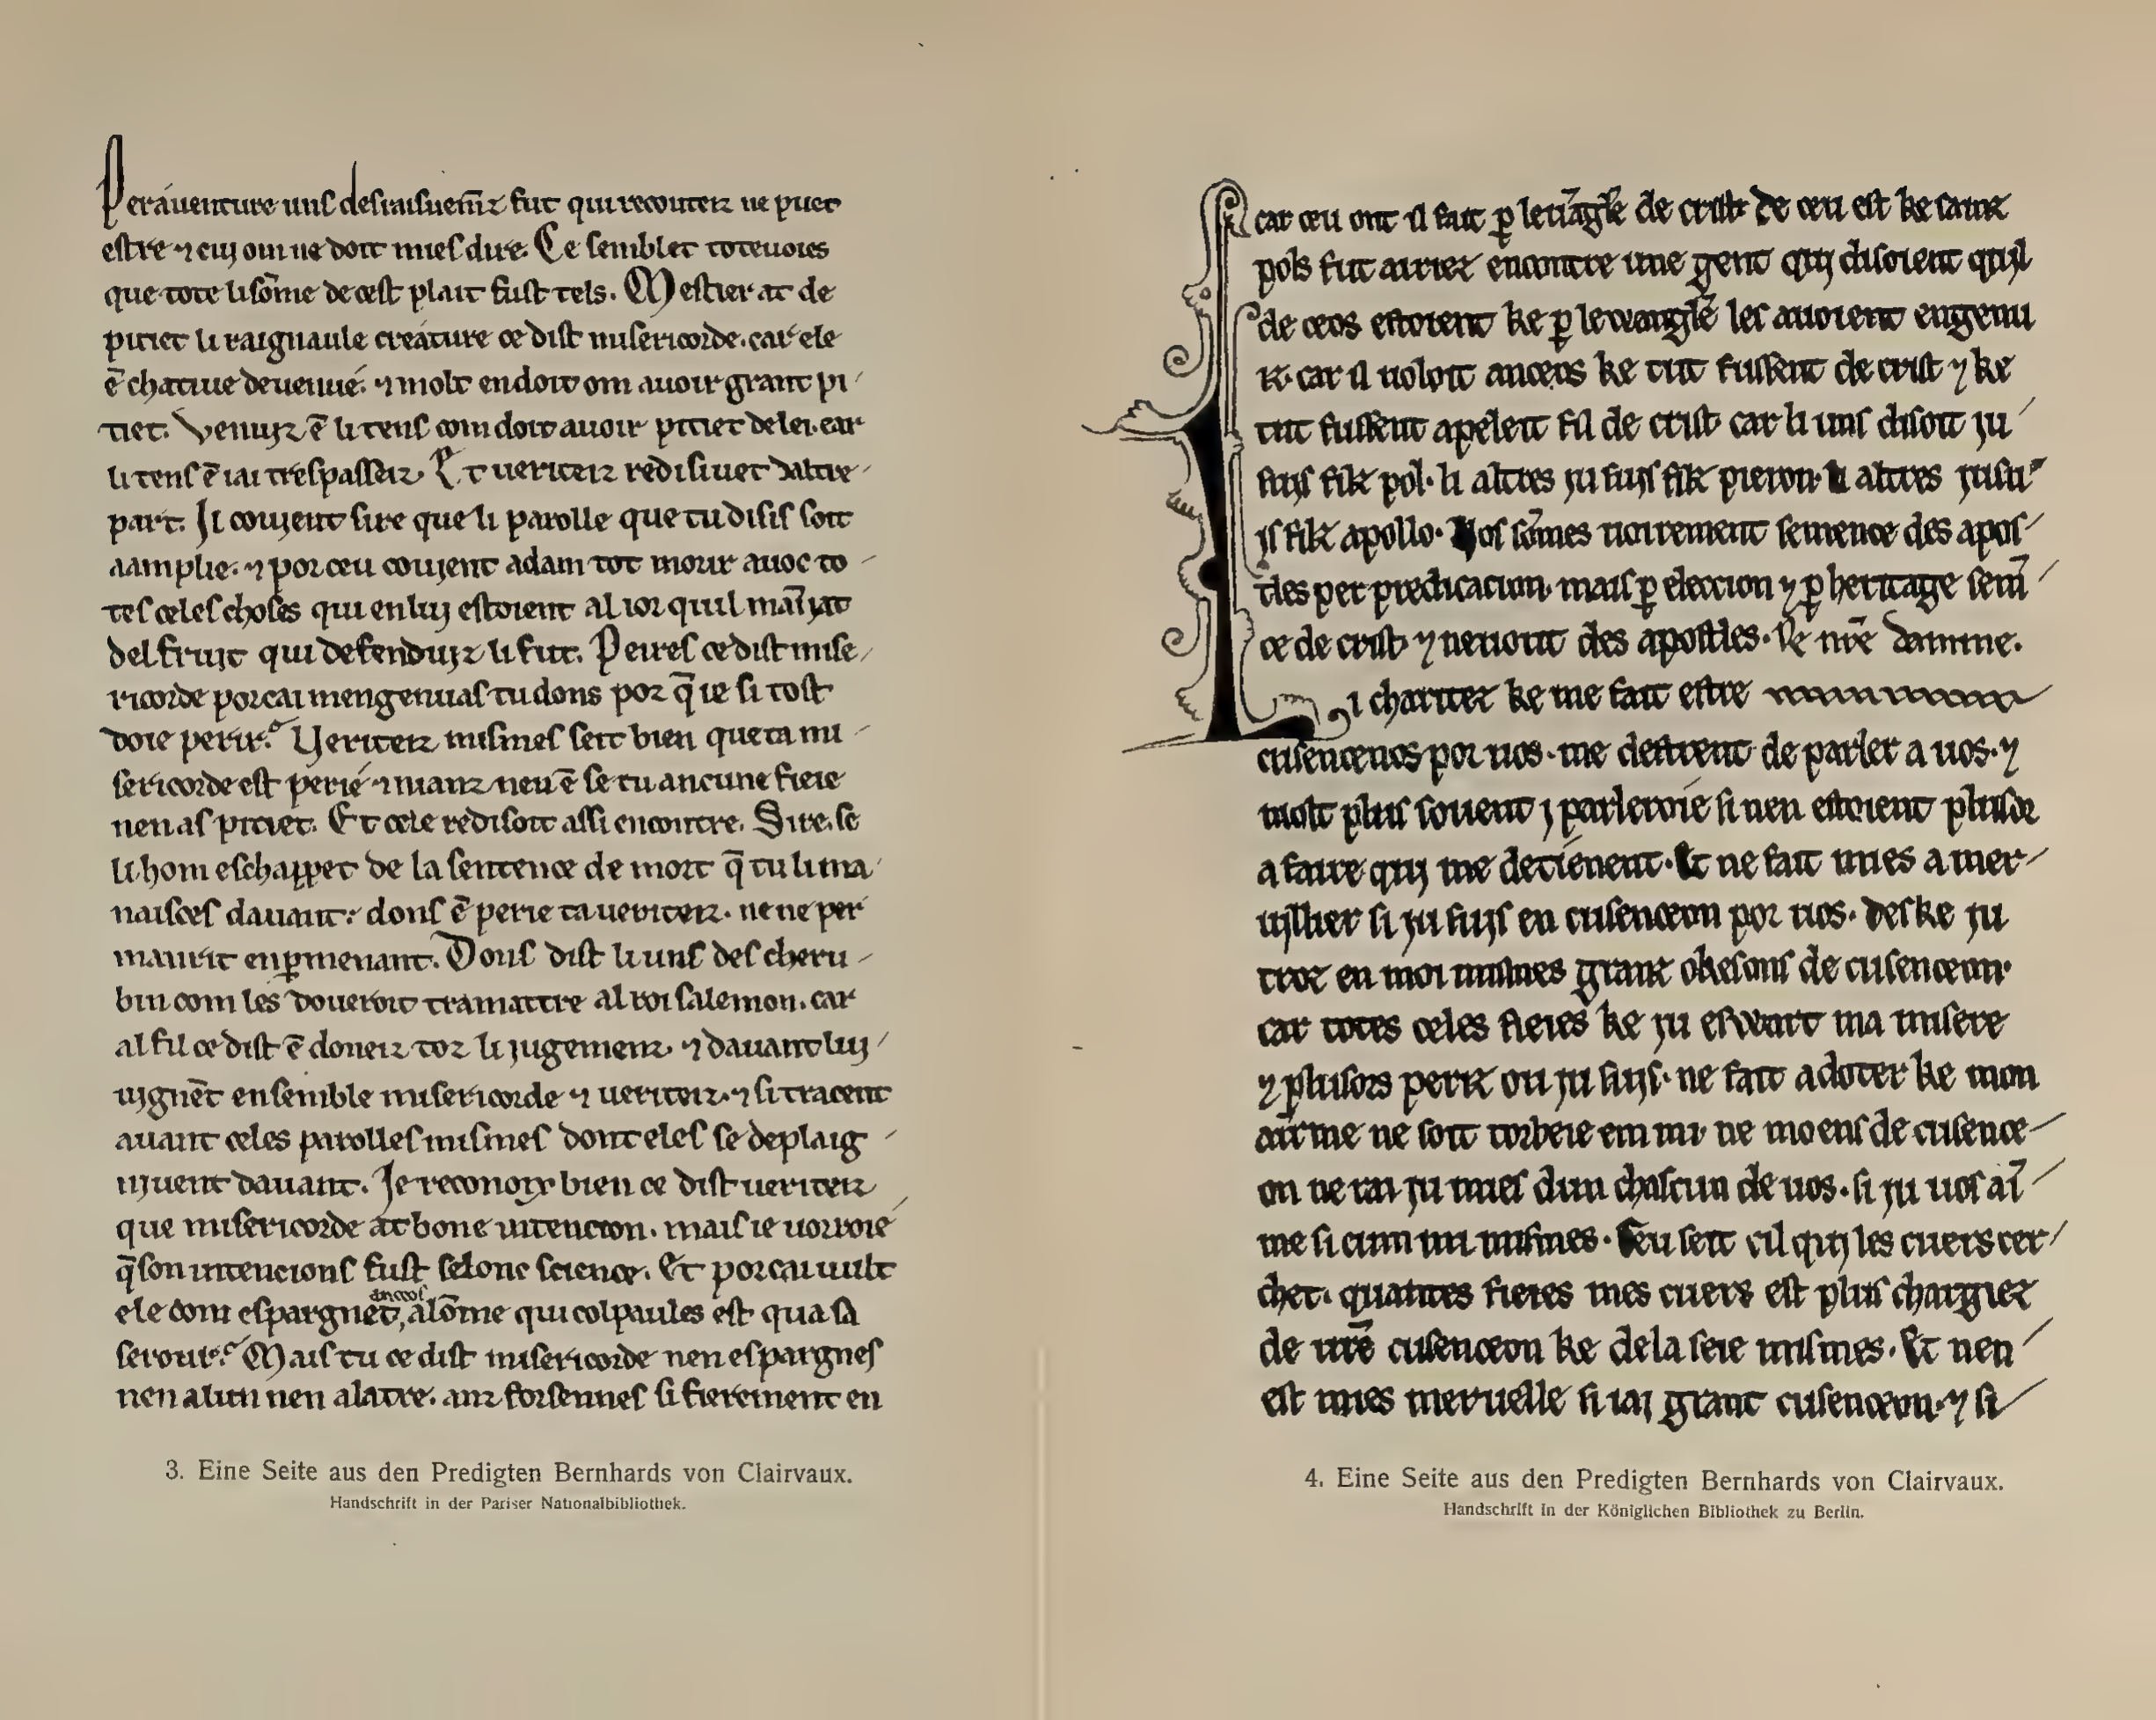 Perauenture uns desraisnem̄z fut qui recouteiz ne puet
estre ⁊ cuj om ne doit mies dire. Ce semblet toteuoies
que tote li sōme de cest plait fust tels. Mestier at de
pitiet li raignaule creature ce dist misericorde. car ele
ē chatiue deuenue. ⁊ molt en doit om auoir grant pi
tiet. Venujz ē li tens com doit auoir pitiet de lei. car
li tens ē iai trespasseiz. Et ueriteiz redisiuet daltre
part. Il coujent sire que li parolle que tu disis soit
aamplie. ⁊ por ceu coujent adam tot morir auoc to
tes celes choses qui en luj estoient al ior quil maniat
del fruit qui defendujz li fut. Peires ce dist mise
ricorde por cai mengenuas tu dons por q̄ ie si tost
doie perir? Ueriteiz mismes seit bien que ta mi
sericorde est perie ⁊ nianz nen ē se tu ancune fieie
nen as pitiet. Et cele redisoit assi encontre. Sire. se
li hom eschappet de la sentence de mort q̄ tu li ma
naisces dauant: dons ē perie ta ueriteiz. ne ne per
maurit en ꝑmenant. Dons dist li uns des cheru
bin com les doueroit tramattre al roi salemon. car
al fil ce dist ē doneiz toz li jugemenz. ⁊ dauant luj
ujgnēt ensemble misericorde ⁊ ueriteiz. ⁊ si tracent
auant celes parolles mismes dont eles se deplaig
njuent dauant. Je reconoix bien ce dist ueriteiz
que misericorde at bone intencion. mais ie uorroie
q̄ son intencions fust selonc science. Et por cai uult
ancois
ele com espargnet, alōme qui colpaules est qua sa
serour? Mais tu ce dist misericorde nen espargnes
nen a lun nen a latre. anz forsennes si fierement en
3. Eine Seite aus den Predigten Bernhards von Clairvaux.
Handschrift in der Pariser Nationalbibliothek.
car ceu ont il fait ꝑ leuāgl̄e de crist. De ceu est ke sainz
pols fut airiez encontre une gent quj disoient quil
de ceos estoient ke ꝑ lewangl̄e les auoient engenu
iz. car il uoloit anceos ke tut fussent de crist ⁊ ke
tut fussent apeleit fil de crist. car li uns disoit ju
sujs filz pol. li altres ju sujs filz pieron. li altres ju su
js filz apollo. Nos sōmes uoirement semence des apos
tles per predicacion. mais ꝑ eleccion ⁊ ꝑ heritage sem̄
ce de crist. ⁊ ne niont des apostles. De nr̄e damme.
Li chariteiz ke me fait estre
cusencenos por uos. me destrent de parler a uos. ⁊
molt plus souent j parleroie si nen estoient plusor
afaire quj me detienent. Et ne fait mies a mer
ujllier si ju sujs en cusenceon por uos. deske ju
troz en moi mismes granz okesons de cusenceon.
car totes celes fieies ke ju eswart ma misere
⁊ plusors periz ou ju sujs. ne fait a doter ke mon
airme ne soit torbeie em mi. ne moens de cusence
on ne rai ju mies dun chascun de uos. si ju uos ai
me si cum mi mismes. Ceu seit cil quj les cuers cer
chet. quantes fieies mes cuers est plus chargiez
de ur̄e cusenceon ke de la seie mismes. Et nen
est mies meruelle si iaj grant cusenceon. ⁊ si
4. Eine Seite aus den Predigten Bernhards von Clairvaux.
Handschrift in der Königlichen Bibliothek zu Berlin.